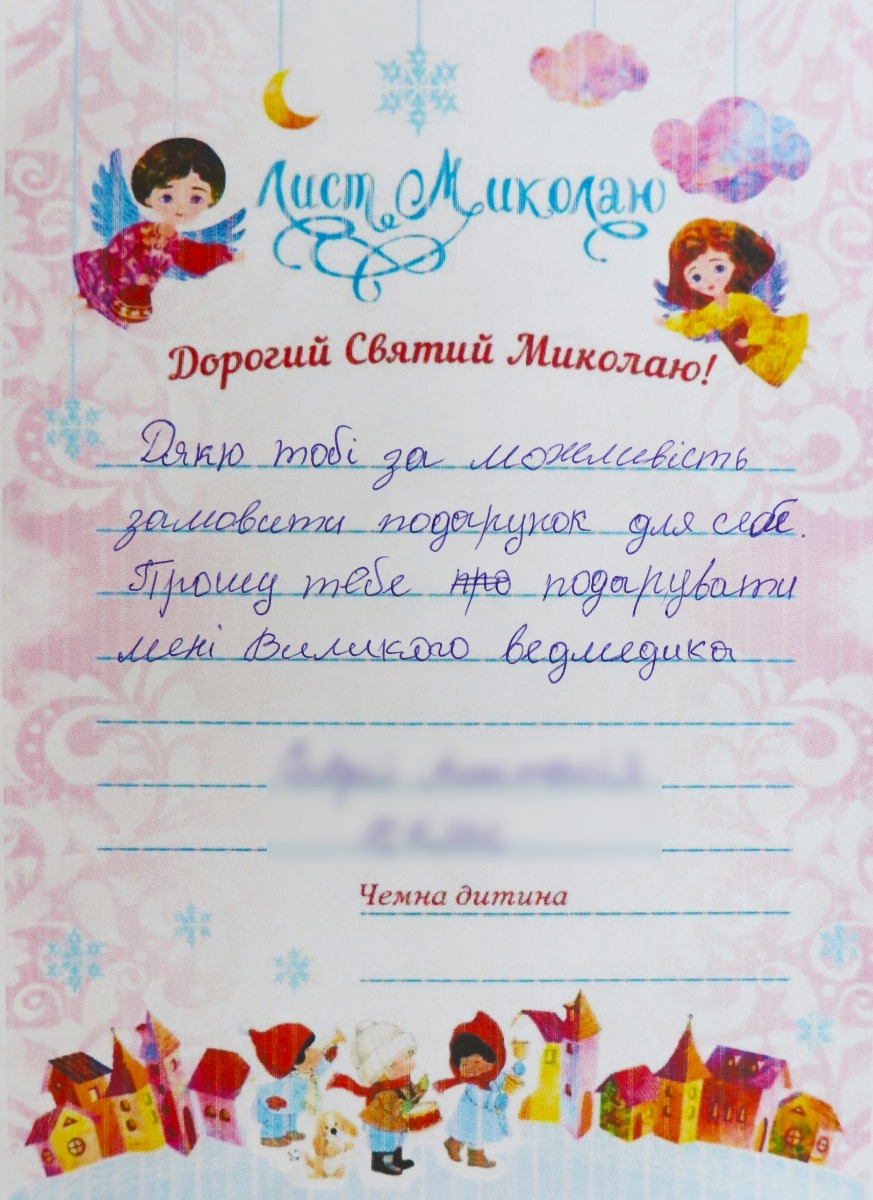 Лист Миколаю
Дорогий Святий Миколаю!
Дякю тобі за можливість
замовити подарунок для себе.
Прошу тебе про подарувати
мені Виликого ведмедика
Чемна дитина